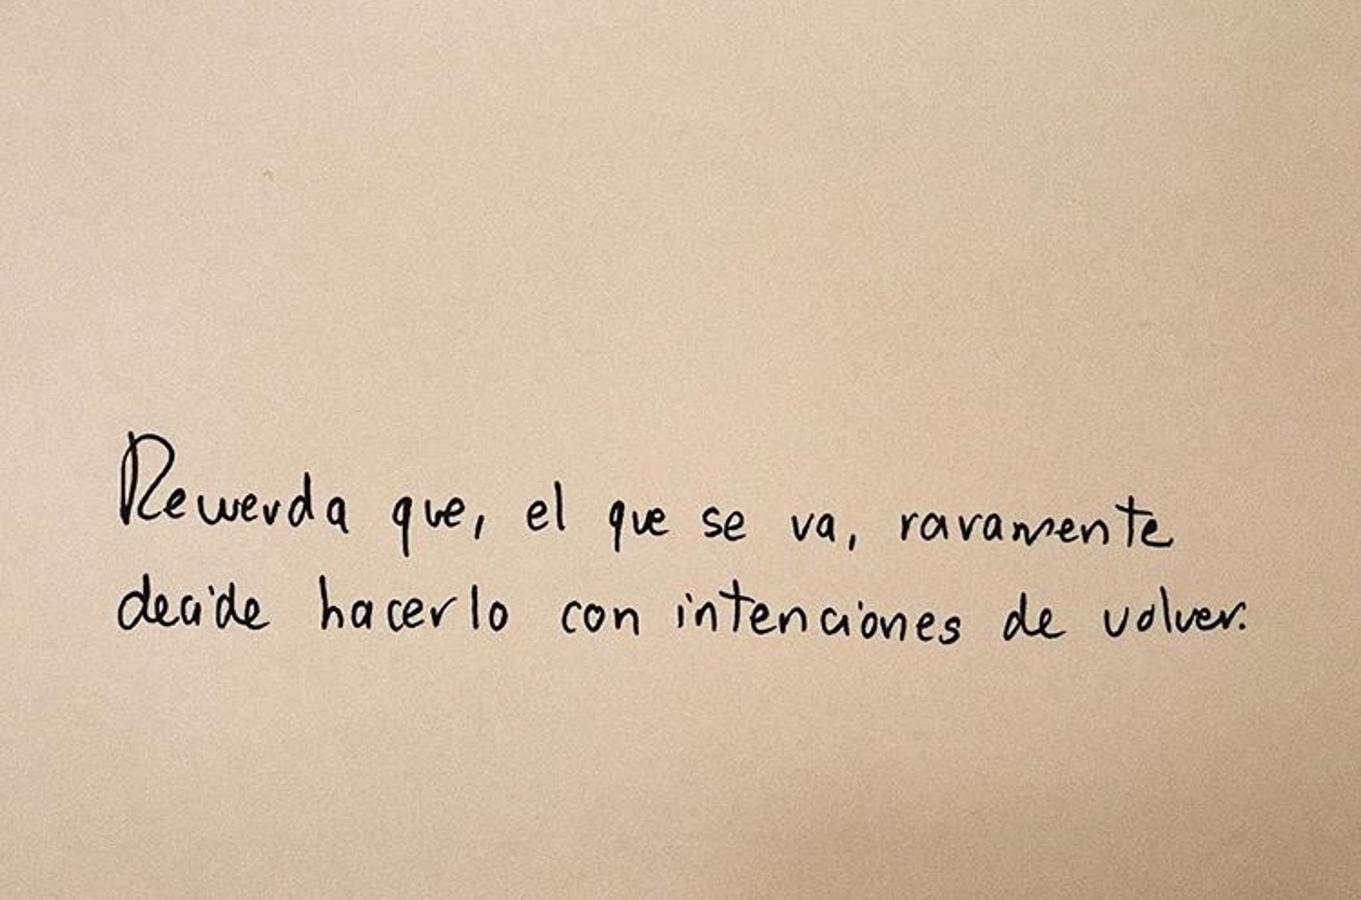 Recuerda que, el que se va, raramente
decide hacerlo con intenciones de volver.